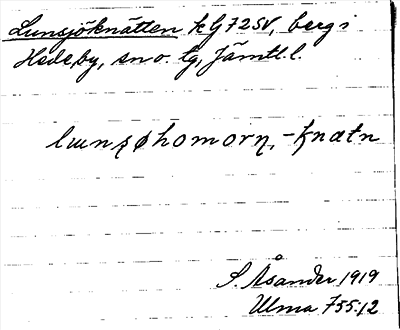 Lunsjöknätten kG72SV, berg i
Hede by, sn o. tg, Jämtl. l.
lɯnʂøhomorn̥, -knætn
S. Åsander 1919
Ulma 755:12